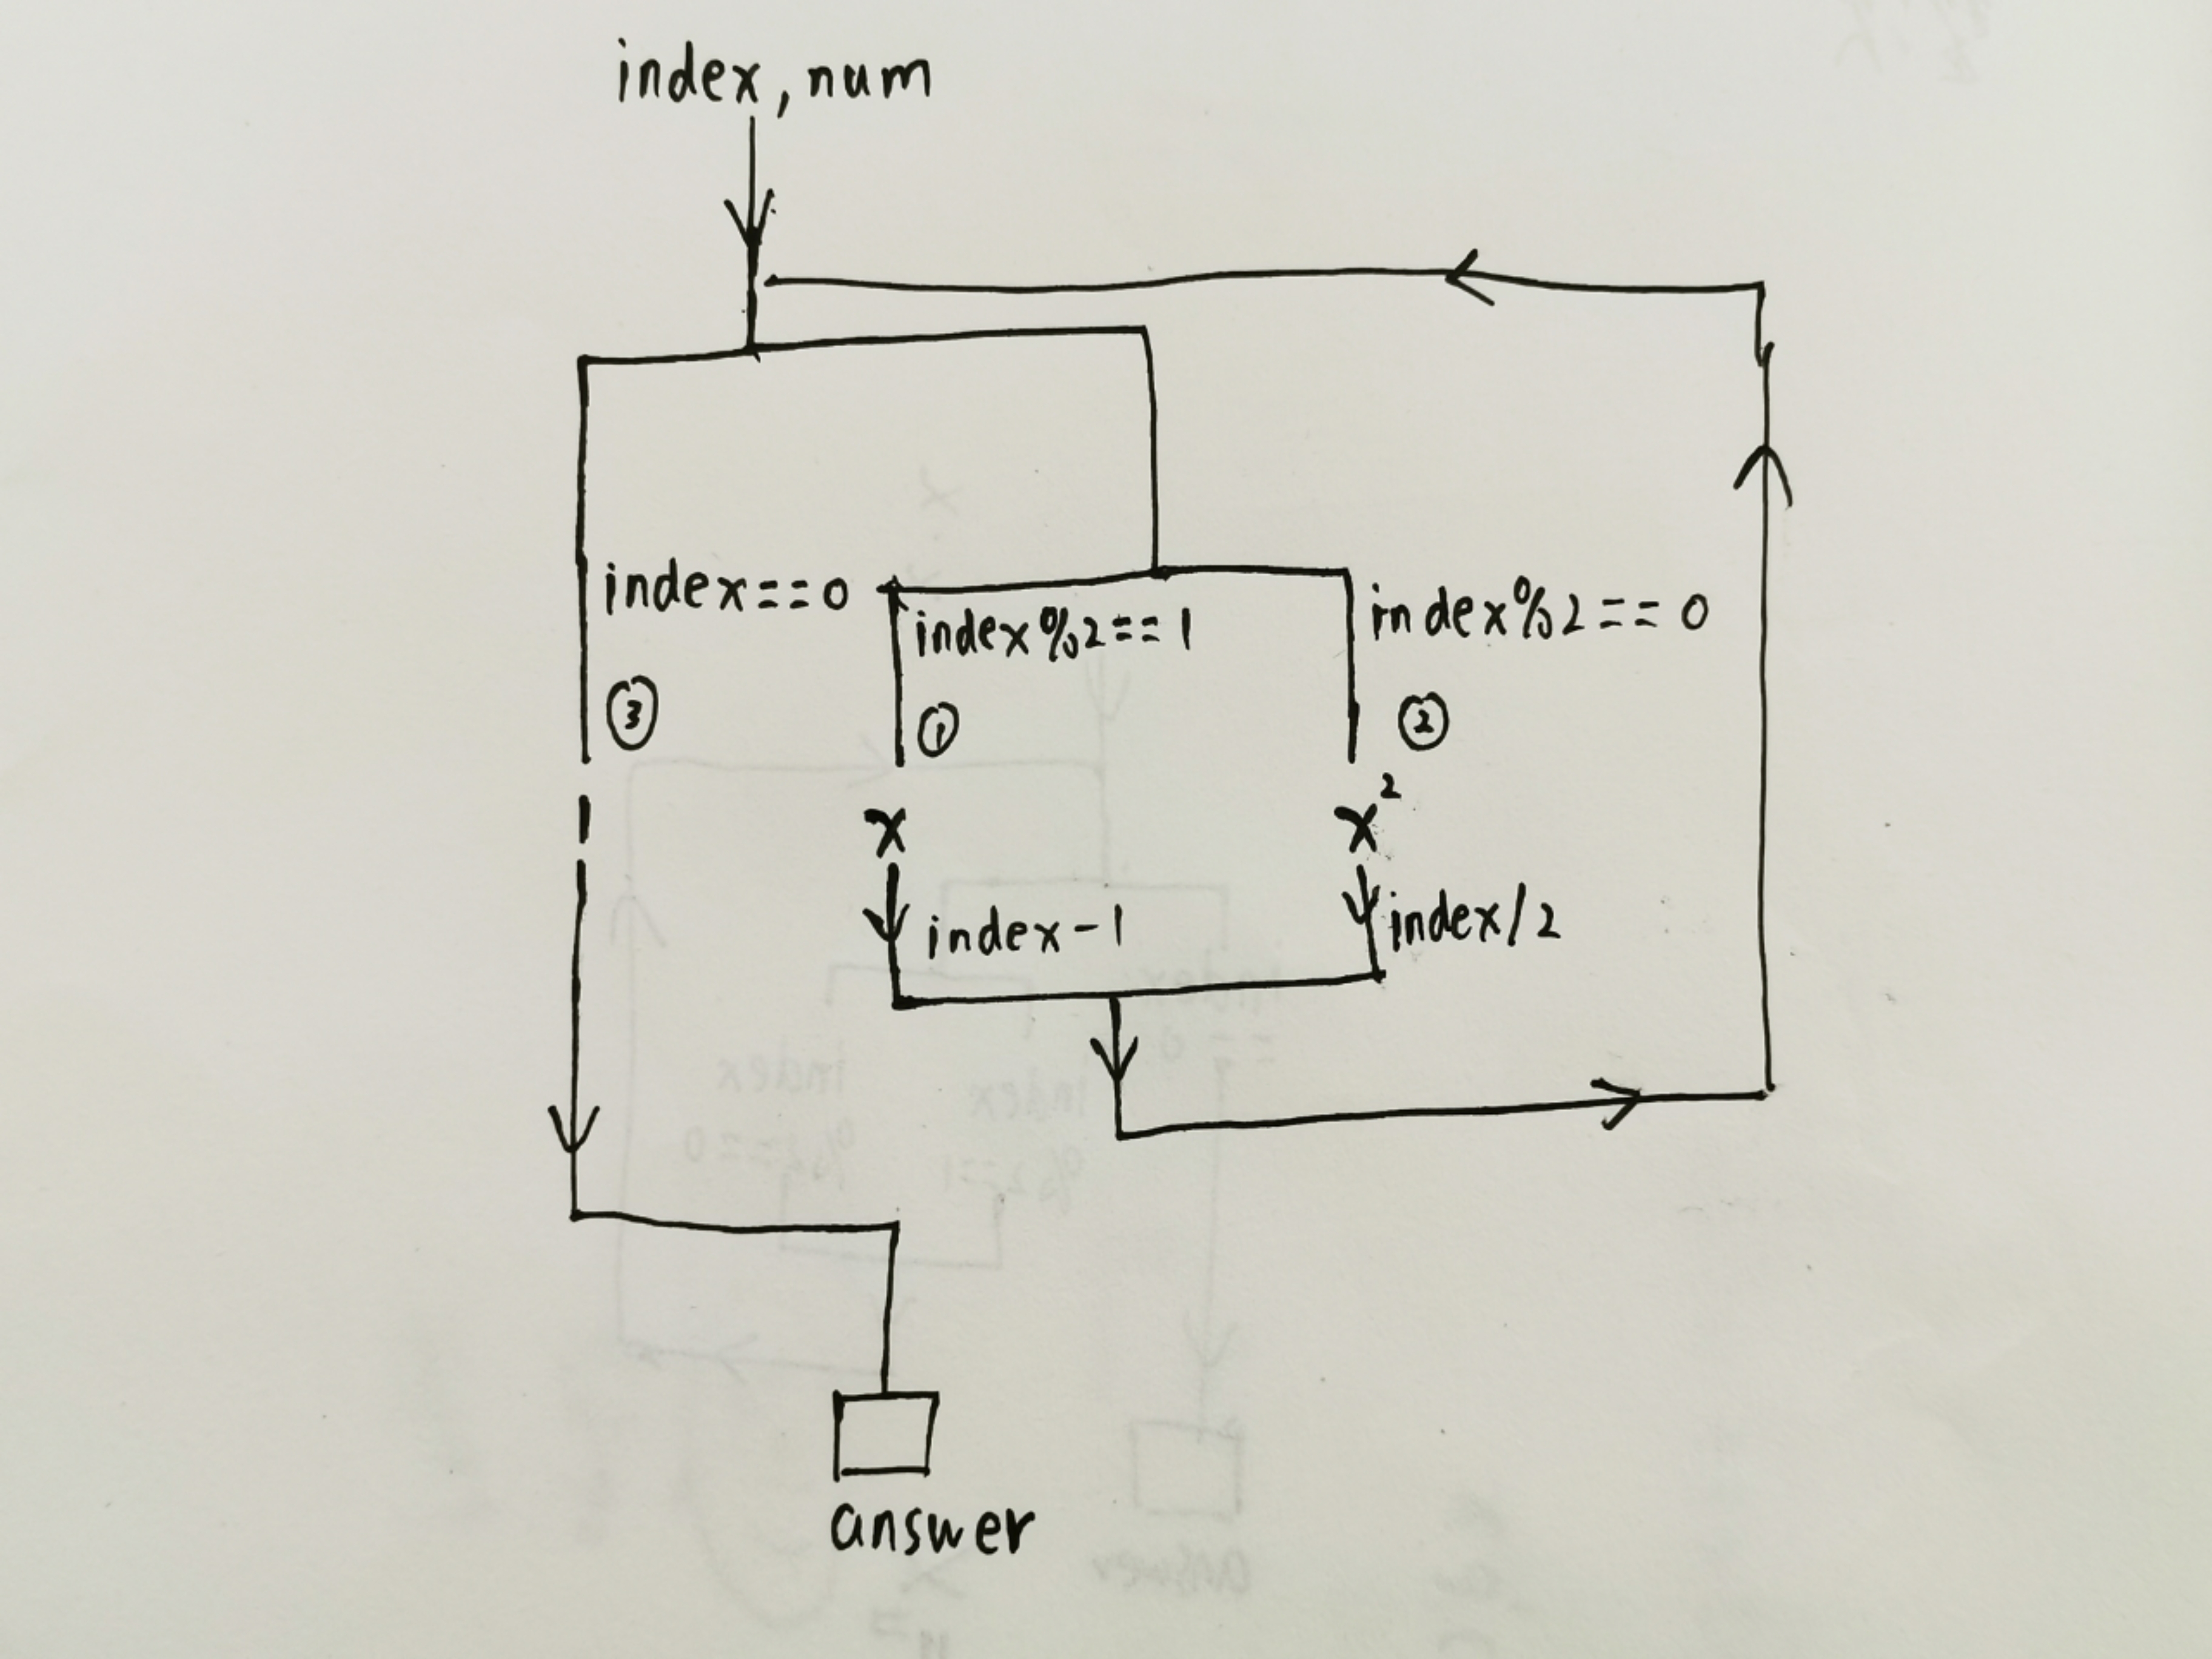 index, num
index==0
index%2==1
index%2==0
③
①
②
1
x
x²
index-1
index/2
answer